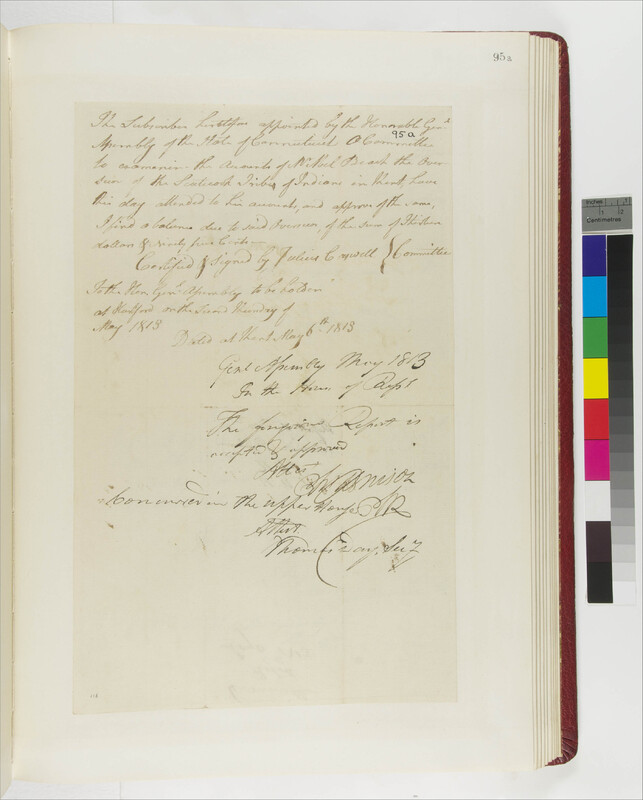 95a
The Subscriber heretofore appointed by the Honorable Genl
Assembly of the State of Connecticut a Committee
95a
to examine the Accounts of the Over
seer of the Scatacook Tribe of Indians in Kent, have
this day attended to his accounts, and approve of the same,
I find a balance due to said Overseer, of the sum of
dollars & Ninety five Cents
Certified & Signed by Julius Caswell } Committee
To the Hon. Genl Assembly to be holden
at Hartford on the Second Thursday of
May 1813
Dated at Kent May 6th 1813
Genl Assembly May 1813
In the House of Reps
The foregoing Report is
accepted & approved
Attest
Concurred in the upper House
Attest.
Thomas Day, Secy
Inches
1 2
Centimetres